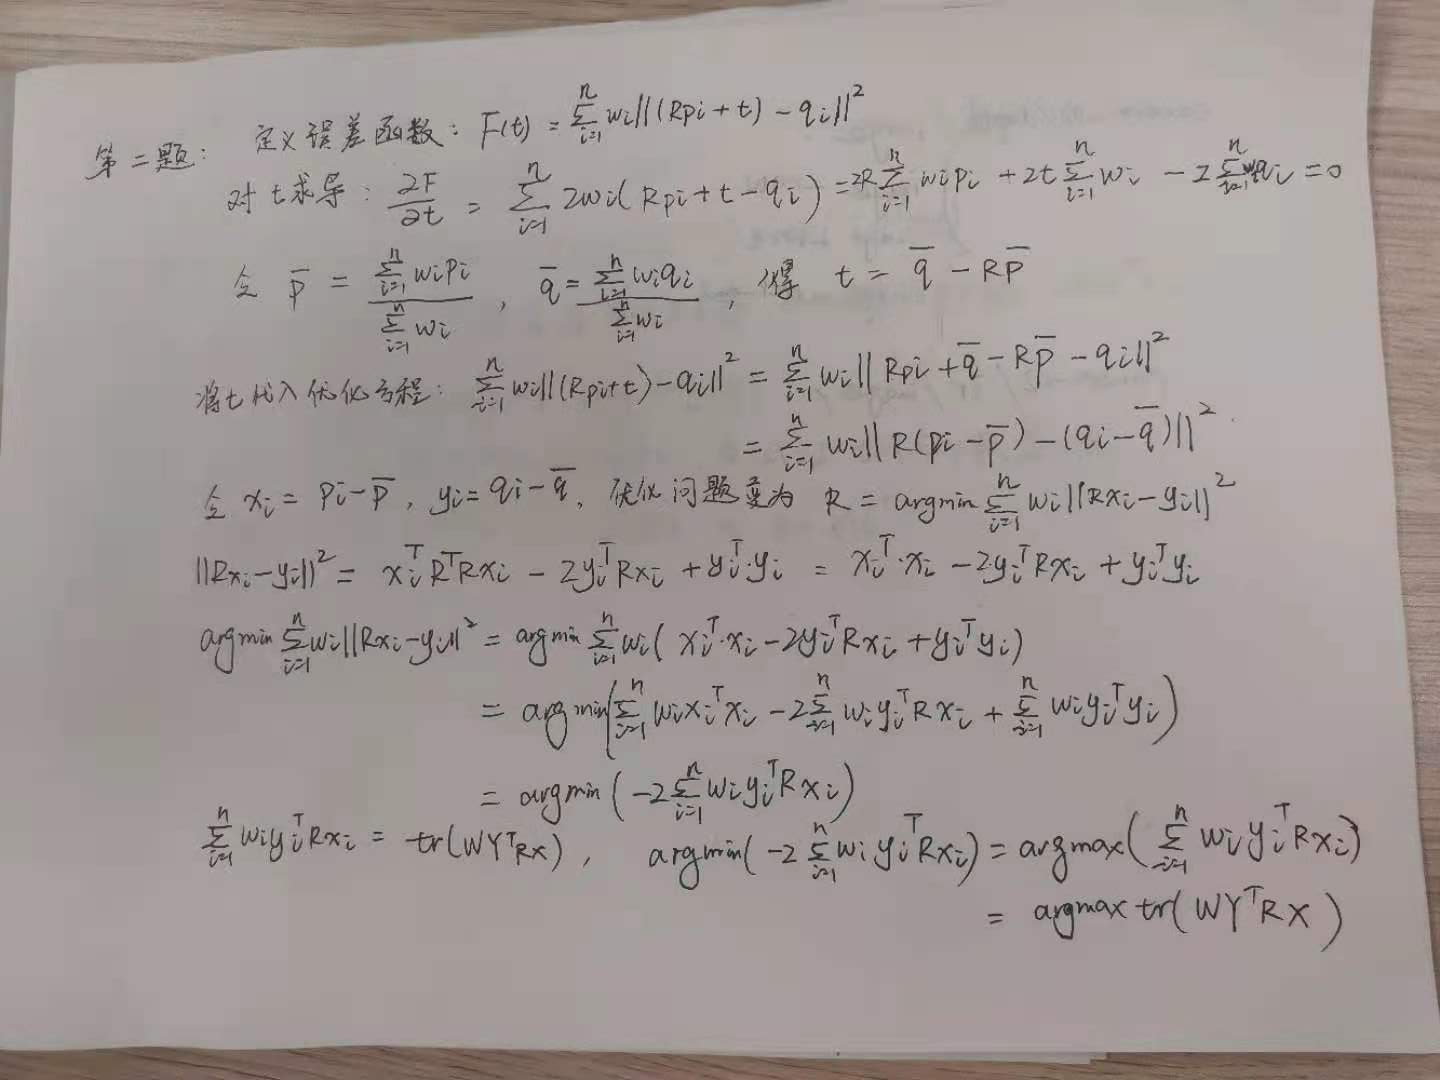 第二题: 定义误差函数: F(t) = \sum_{i=1}^{n} wi||(Rpi + t) - qi||^2
对t求导: \frac{∂F}{∂t} = \sum_{i=1}^{n} 2wi(Rpi + t - qi) = 2R\sum_{i=1}^{n} wipi + 2t\sum_{i=1}^{n} wi - 2\sum_{i=1}^{n} wiqi = 0
令 \bar{p} = \frac{\sum_{i=1}^{n} wipi}{\sum_{i=1}^{n} wi}, \bar{q} = \frac{\sum_{i=1}^{n} wiqi}{\sum_{i=1}^{n} wi}, 得 t = \bar{q} - R\bar{p}
将t代入优化方程: \sum_{i=1}^{n} wi||(Rpi+t)-qi||^2 = \sum_{i=1}^{n} wi||Rpi + \bar{q} - R\bar{p} - qi||^2
= \sum_{i=1}^{n} wi||R(pi-\bar{p}) - (qi-\bar{q})||^2.
令 xi = pi-\bar{p}, yi = qi-\bar{q}, 优化问题变为 R = argmin \sum_{i=1}^{n} wi||Rxi-yi||^2
||Rxi-yi||^2 = xi^T R^T Rxi - 2yi^T Rxi + yi^T·yi = xi^T·xi - 2yi^T Rxi + yi^T yi
argmin \sum_{i=1}^{n} wi||Rxi-yi||^2 = argmin \sum_{i=1}^{n} wi( xi^T·xi - 2yi^T Rxi + yi^T yi)
= argmin(\sum_{i=1}^{n} wixi^T xi - 2\sum_{i=1}^{n} wiyi^T Rxi + \sum_{i=1}^{n} wiyi^T yi)
= argmin(-2\sum_{i=1}^{n} wiyi^T Rxi)
\sum_{i=1}^{n} wiyi^T Rxi = tr(WY^T RX), argmin(-2\sum_{i=1}^{n} wiyi^T Rxi) = argmax(\sum_{i=1}^{n} wiyi^T Rxi)
= argmax tr(WY^T RX)